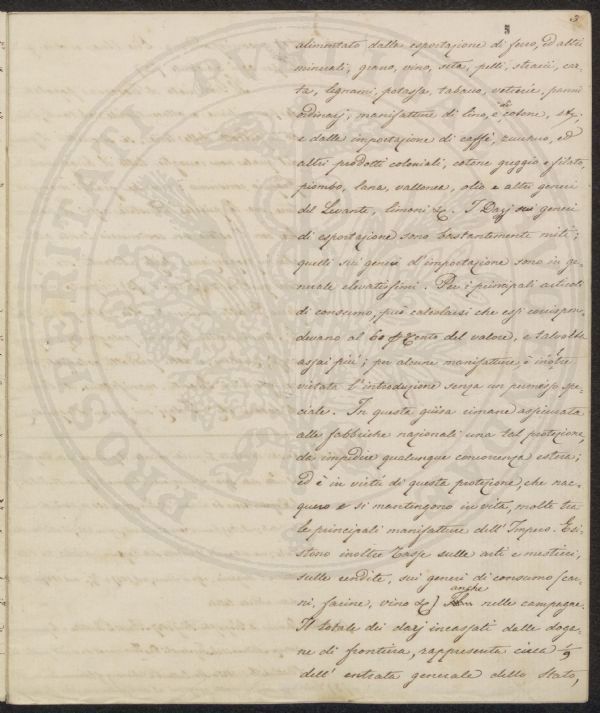 3
3
alimentato dalle esportazione di ferro, ed altri
minerali, grano, vino, seta, pelli, stracci, car-
ta, legnami, potassa, tabacco, vetrerie, panni
ordinarj, manifatture di lino, e di cotone, &c;
e dalle importazione di caffè, zucchero, ed
altri prodotti coloniali, cotone greggio e filato,
piombo, lana, vallonea, olio e altri generi
del Levante, limoni &c. I Dazj sui generi
di esportazione sono bastantemente miti;
quelli sui generi d'importazione sono in ge-
nerale elevatissimi. Per i principali articoli
di consumo, può calcolarsi che essi corrispon-
devano al 60 p Cento del valore, e talvolta
assai più; per alcune manifatture è inoltre
vietata l'introduzione senza un permesso spe-
ciale. In questa guisa rimane assicurata
alle fabbriche nazionali una tal protezione,
da impedire qualunque concorrenza estera;
ed è in virtù di questa protezione, che nac-
quero e si mantengono in vita, molte tra
le principali manifatture dell'Impero. Esi-
stono inoltre Tasse sulle arti e mestieri,
sulle rendite, sui generi di consumo (car-
ni, farine, vino &c) anche nelle campagne.
Il totale dei dazj incassati dalle doga-
ne di frontiera, rappresenta circa 1/9
dell'entrata generale dello Stato,
PROSPERITATI PVBLICAE